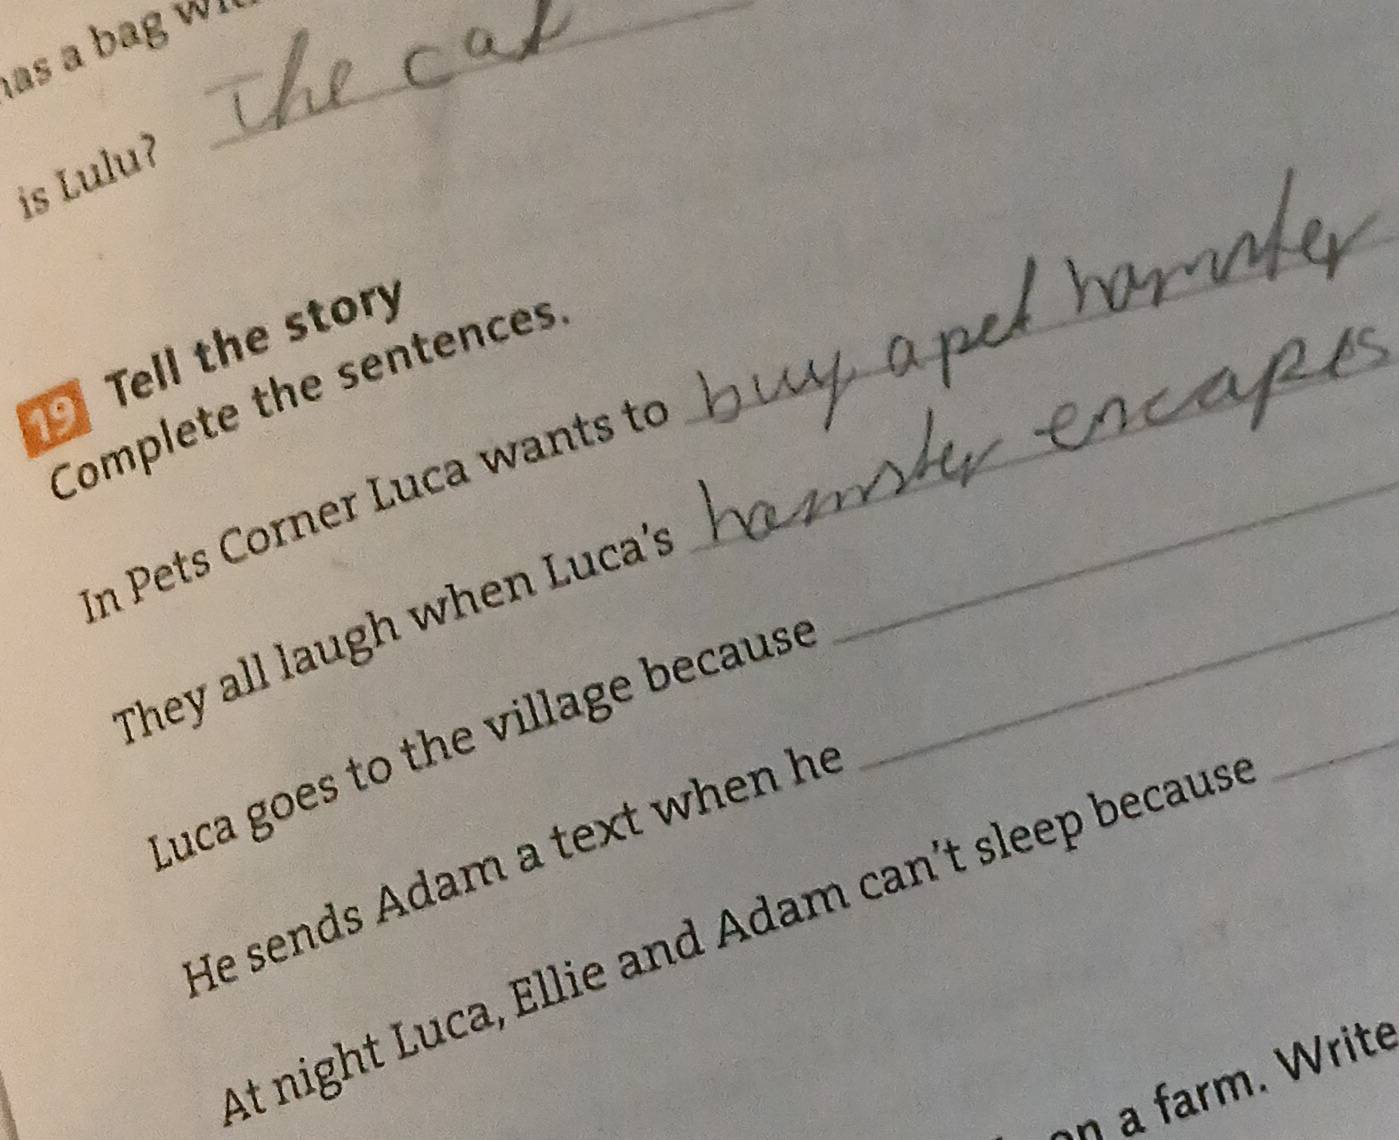 has a bag
The cat
is Lulu?
19 Tell the story
Complete the sentences.
In Pets Corner Luca wants to buy a pet hamster
They all laugh when Luca's hamster encapes
Luca goes to the village because
He sends Adam a text when he
At night Luca, Ellie and Adam can't sleep because
on a farm. Write